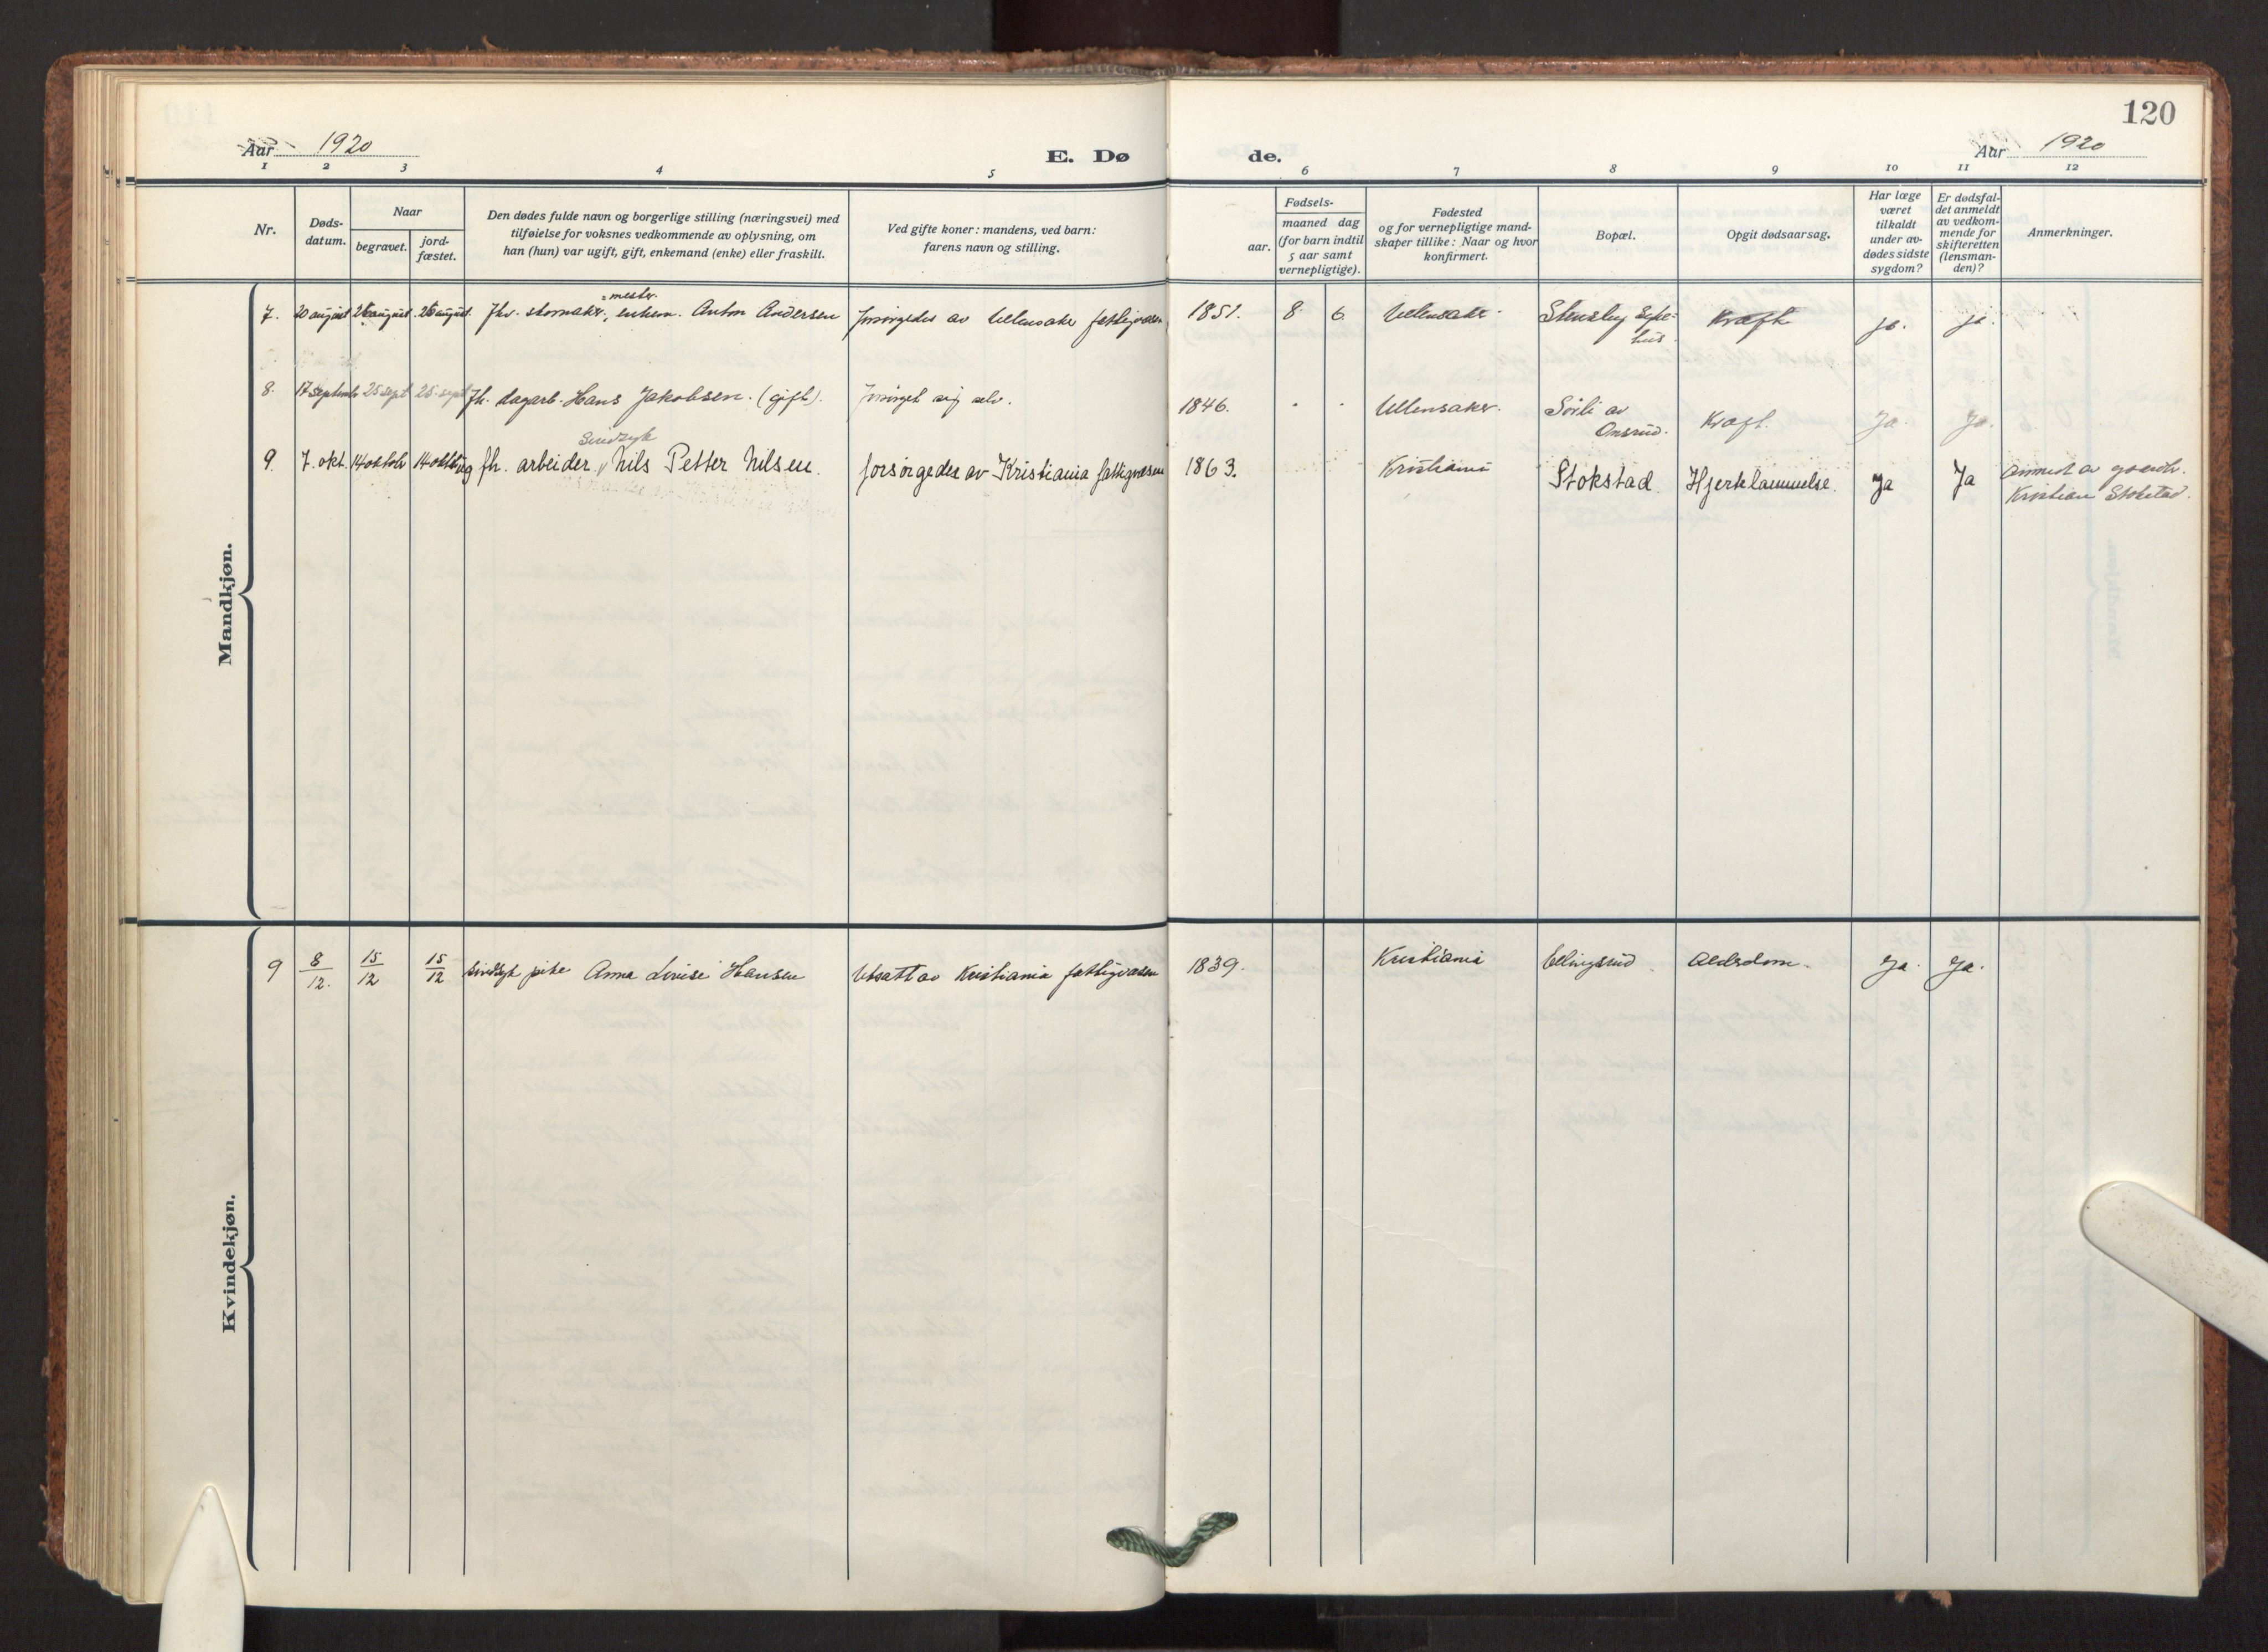 120
Aar 1920
E. Dø de.
Aar 1920
1 2 3 4 5 6 7 8 9 10 11 12
Nr.
Døds-
datum.
Naar
begravet.
jord-
fæstet.
Den dødes fulde navn og borgerlige stilling (næringsvei) med
tilføielse for voksnes vedkommende av oplysning, om
han (hun) var ugift, gift, enkemand (enke) eller fraskilt.
Ved gifte koner: mandens, ved barn:
farens navn og stilling.
Fødsels-
aar.
maaned dag
(for barn indtil
5 aar samt
vernepligtige).
Fødested
og for vernepligtige mand-
skaper tillike: Naar og hvor
konfirmert.
Bopæl.
Opgit dødsaarsag.
Har læge
været
tilkaldt
under av-
dødes sidste
sygdom?
Er dødsfal-
det anmeldt
av vedkom-
mende for
skifteretten
(lensman-
den)?
Anmerkninger.
Mandkjøn.
mester.
7. 20 august august august Fhv. skomaker, enkem. Anton Andersen forsørgedes av Ullensaker fattigvæsen 1851. 8. 6 Ullensaker. Stensby Syke- Kræft ja. ja.
hus.
8. 17 septemb 25 sept 25. sept fh. dagarb. Hans Jakobsen. (gift). Forsørget sig selv. 1846. Ullensaker. Sørli av Kræft. Ja. Ja.
Onsrud.
Sindsyk
9. 7. okt. 14 oktob 14 oktob fh. arbeider, Nils Petter Nilsen. forsørgedes av Kristiania fattigvæsen 1863. Kristiania Stokstad. Hjertelammelse. Ja Ja Anmeldt av gaardbr.
Kristian Stokstad.
Kvindekjøn.
9 8/12. 15/12 15/12 sindsyk pike Anna Lovise Hansen Utsatt av Kristiania fattigvæsen 1839. Kristiania Ellingsrud. Alderdom. Ja. Ja.